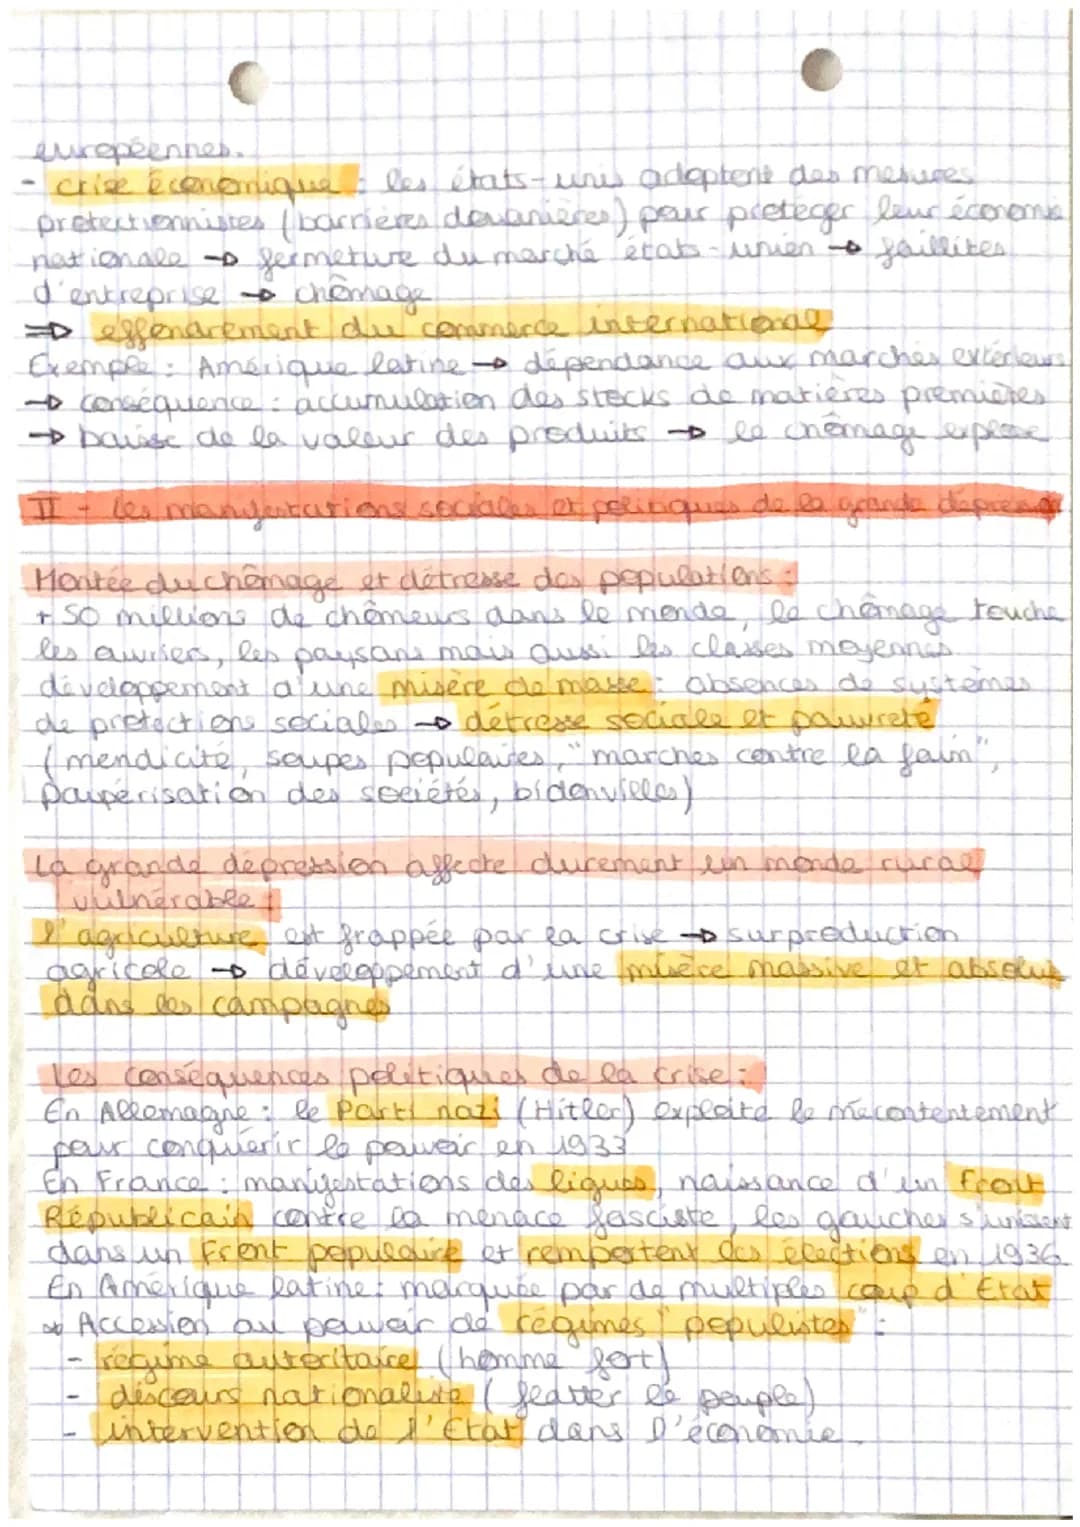 européennes.
- crise économique : les états-unis adoptent des mesures
protectionnistes (barrières douanières) pour protéger leur économie
nationale → fermeture du marché états-unien → faillites
d'entreprise → chômage
⇒ effondrement du commerce international
Exemple : Amérique latine → dépendance aux marchés extérieurs
→ conséquence : accumulation des stocks de matières premières
→ baisse de la valeur des produits → le chômage explose
II - Les manifestations sociales et politiques de la grande dépression
Montée du chômage et détresse des populations :
+ 50 millions de chômeurs dans le monde, le chômage touche
les ouvriers, les paysans mais aussi les classes moyennes
développement d'une misère de masse : absences de systèmes
de protections sociales → détresse sociale et pauvreté
(mendicité, soupes populaires, "marches contre la faim",
paupérisation des sociétés, bidonvilles)
La grande dépression affecte durement un monde rural
vulnérable :
l'agriculture est frappée par la crise → surproduction
agricole → développement d'une misère massive et absolue
dans les campagnes
Les conséquences politiques de la crise :
En Allemagne : le Parti nazi (Hitler) exploite le mécontentement
pour conquérir le pouvoir en 1933
En France : manifestations des ligues, naissance d'un Front
Républicain contre la menace fasciste, les gauches s'unissent
dans un Front populaire et remportent les élections en 1936
En Amérique latine : marquée par de multiples coup d'Etat
Accession au pouvoir de régimes "populistes" :
- régime autoritaire (homme fort)
- discours nationaliste (flatter le peuple)
- intervention de l'Etat dans l'économie